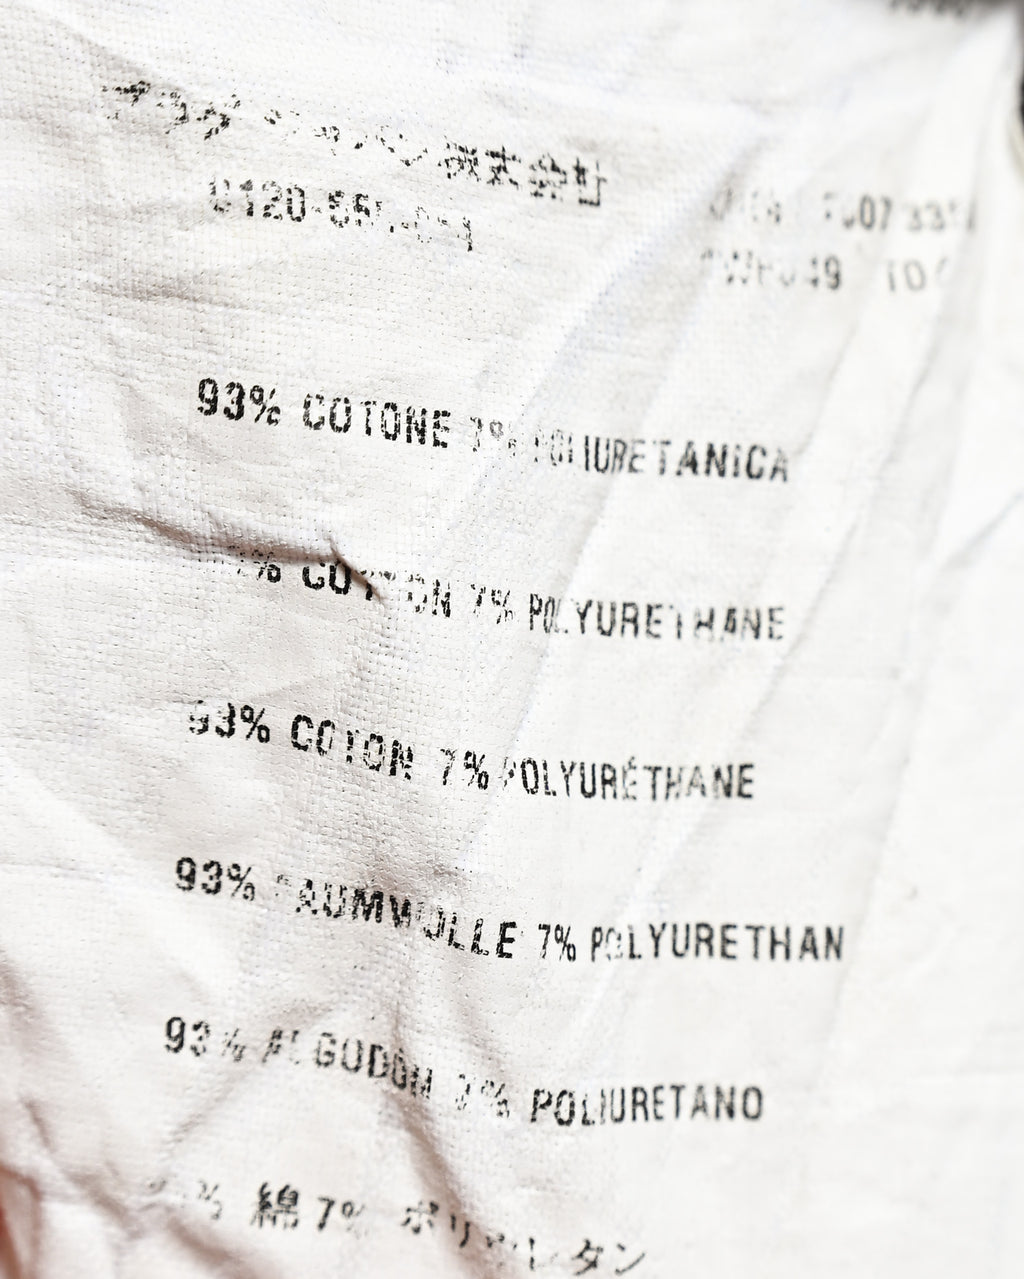 プラダ ジャパン 株式会社
0120
93% COTONE 7% POLIURETANICA
% COTTON 7% POLYURETHANE
93% COTON 7% POLYURÉTHANE
93% BAUMWOLLE 7% POLYURETHAN
93% ALGODÓN 7% POLIURETANO
% 綿 7% ポリウレタン